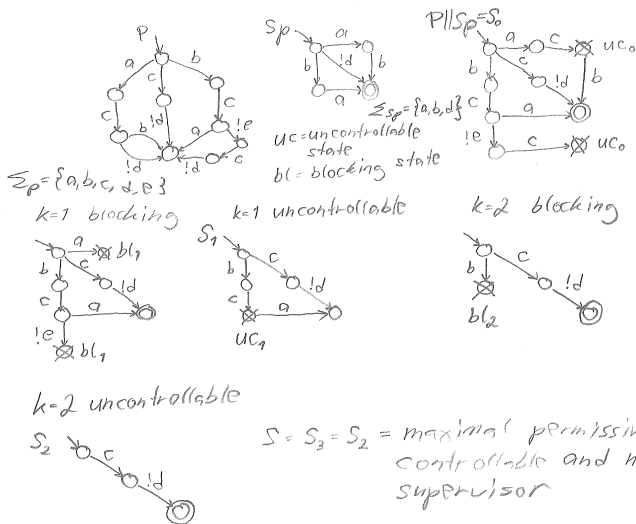 P
a
c
b
c
b
!d
!d
c
c
a
!e
!d
c
Σp = {a,b,c,d,e}
Sp
a
b
!d
b
a
ΣSp = {a,b,d}
uc = uncontrollable
state
bl = blocking state
P||Sp = S0
a
c
uc0
b
c
!d
b
c
a
!e
c
uc0
k=1 blocking
a
bl1
b
c
!d
c
a
!e
bl1
k=1 uncontrollable
S1
b
c
!d
c
a
uc1
k=2 blocking
b
c
!d
bl2
k=2 uncontrollable
S2
c
!d
S = S3 = S2 = maximal
controllable and
supervisor